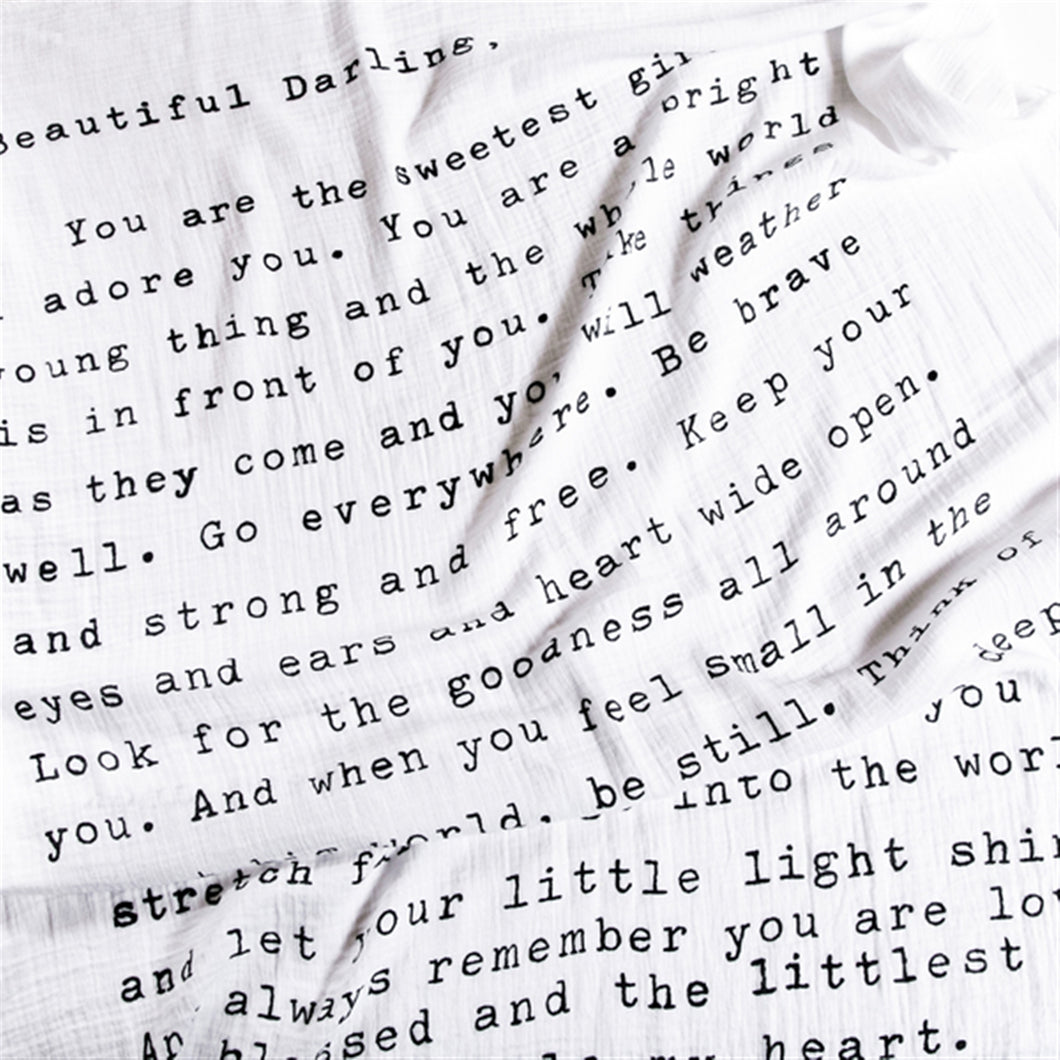 Beautiful Darling,
You are the sweetest
adore you. You are a bright
young thing and the whole world
is in front of you. Take
as they come and you will weather
well. Go everywhere. Be brave
and strong and free. Keep your
eyes and ears and heart wide open.
Look for the goodness all around
you. And when you feel small in the
world, be still. Think of
you deep
stretch into the
and let your little light
always remember you are
and the littlest
heart.